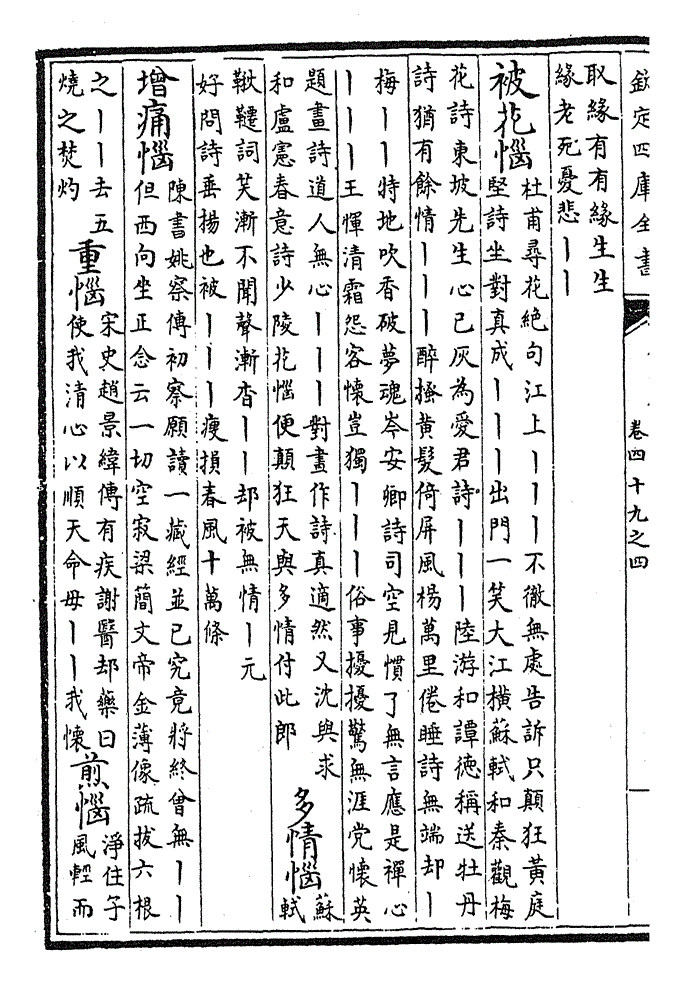 欽定四庫全書
卷四十九之四
取緣有有緣生生
緣老死憂悲｜｜
被花惱
杜甫尋花絕句江上｜｜｜不徹無處告訴只顛狂黃庭
堅詩坐對真成｜｜｜出門一笑大江橫蘇軾和秦觀梅
花詩東坡先生心已灰為愛君詩｜｜｜陸游和譚徳稱送牡丹
詩猶有餘情｜｜｜醉搔黃髮倚屏風楊萬里倦睡詩無端却｜
梅｜｜特地吹香破夢魂岑安卿詩司空見慣了無言應是禪心
｜｜｜王惲清霜怨客懷豈獨｜｜｜俗事擾擾驚無涯党懷英
題畫詩道人無心｜｜｜對畫作詩真適然又沈與求
和盧憲春意詩少陵花惱便顛狂天與多情付此郎
多情惱
蘇
軾
鞦韆詞笑漸不聞聲漸杳｜｜却被無情｜元
好問詩垂楊也被｜｜｜瘦損春風十萬條
增痛惱
陳書姚察傳初察願讀一藏經並已究竟將終曾無｜｜
但西向坐正念云一切空寂梁簡文帝金薄像疏拔六根
之｜｜去五
燒之焚灼
重惱
宋史趙景緯傳有疾謝醫却藥曰
使我清心以順天命毋｜｜我懷
煎惱
淨住子
風輕而